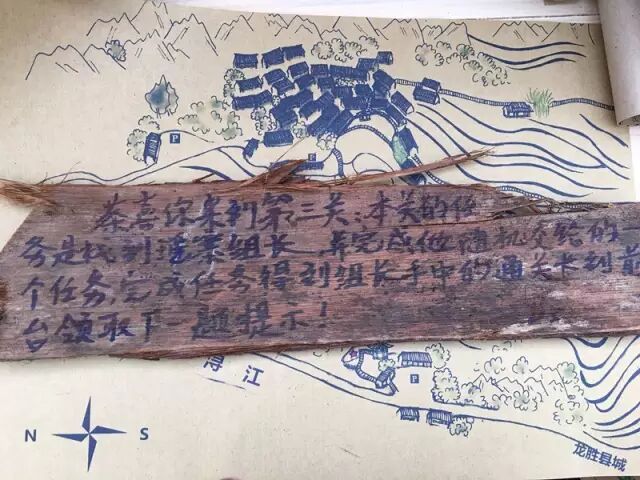 P
P
恭喜你来到第二关:本关的任
务是找到寨组长,并完成他随机交给的一
个任务,完成任务得到组长手中的通关卡到前
台领取下一题提示!
浔江
P
N S
龙胜县城